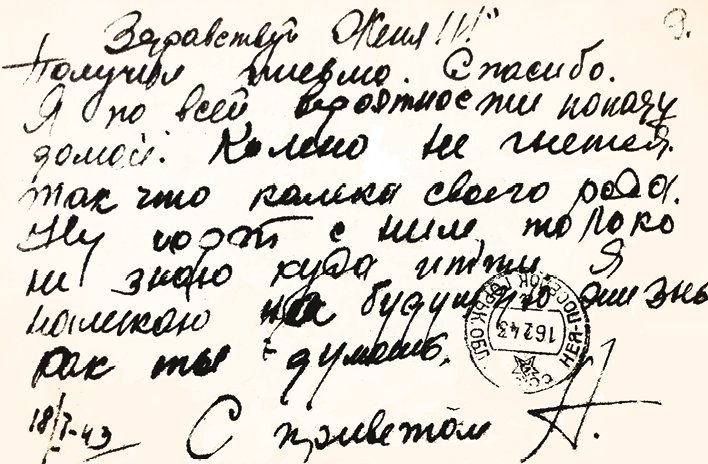 Здравствуй Женя!!!"
9.
Получил письмо. Спасибо.
Я по всей вероятности попаду
домой. Колено не гнется.
так что калека своего рода.
Ну чорт с ним только
не знаю куда итти Я
намекаю на будущую жизнь
как ты думаеш.
С приветом А.
18/I-43
НЕЯ-ПОСЕЛОК ГОРЬК. ОБЛ.
16 2 43